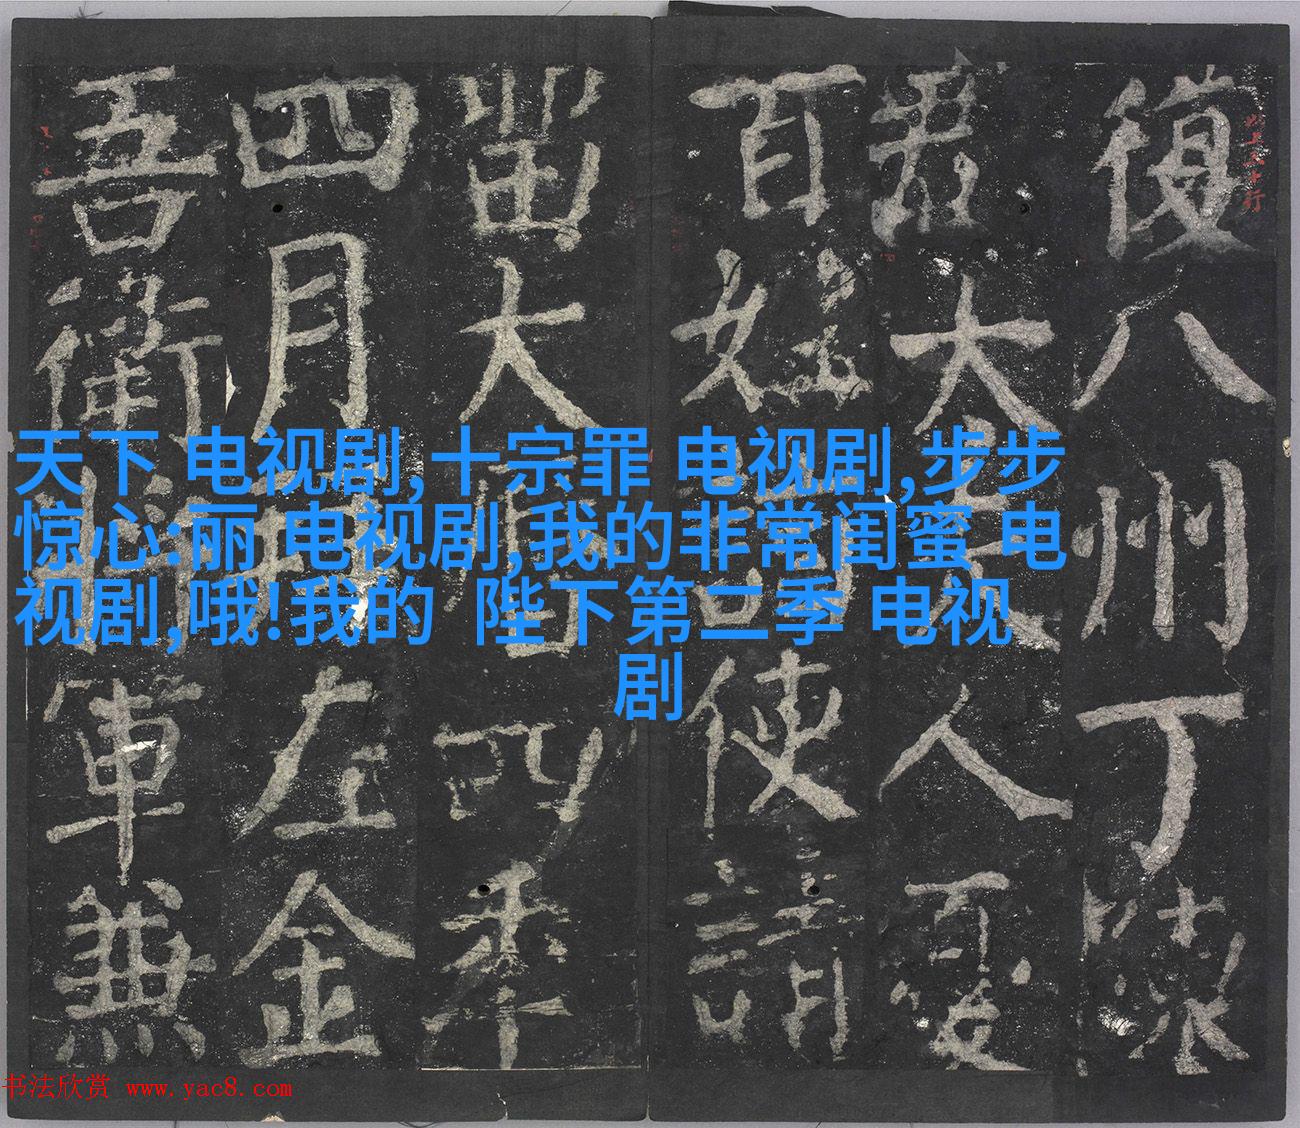 天下 电视剧,十宗罪 电视剧,步步
惊心:丽 电视剧,我的非常闺蜜 电
视剧,哦!我的 陛下第二季 电视
剧
復八州丁
君大夫人
百姓使請
留大四年
四月左金
吾衛軍兼
书法欣赏 www.yac8.com